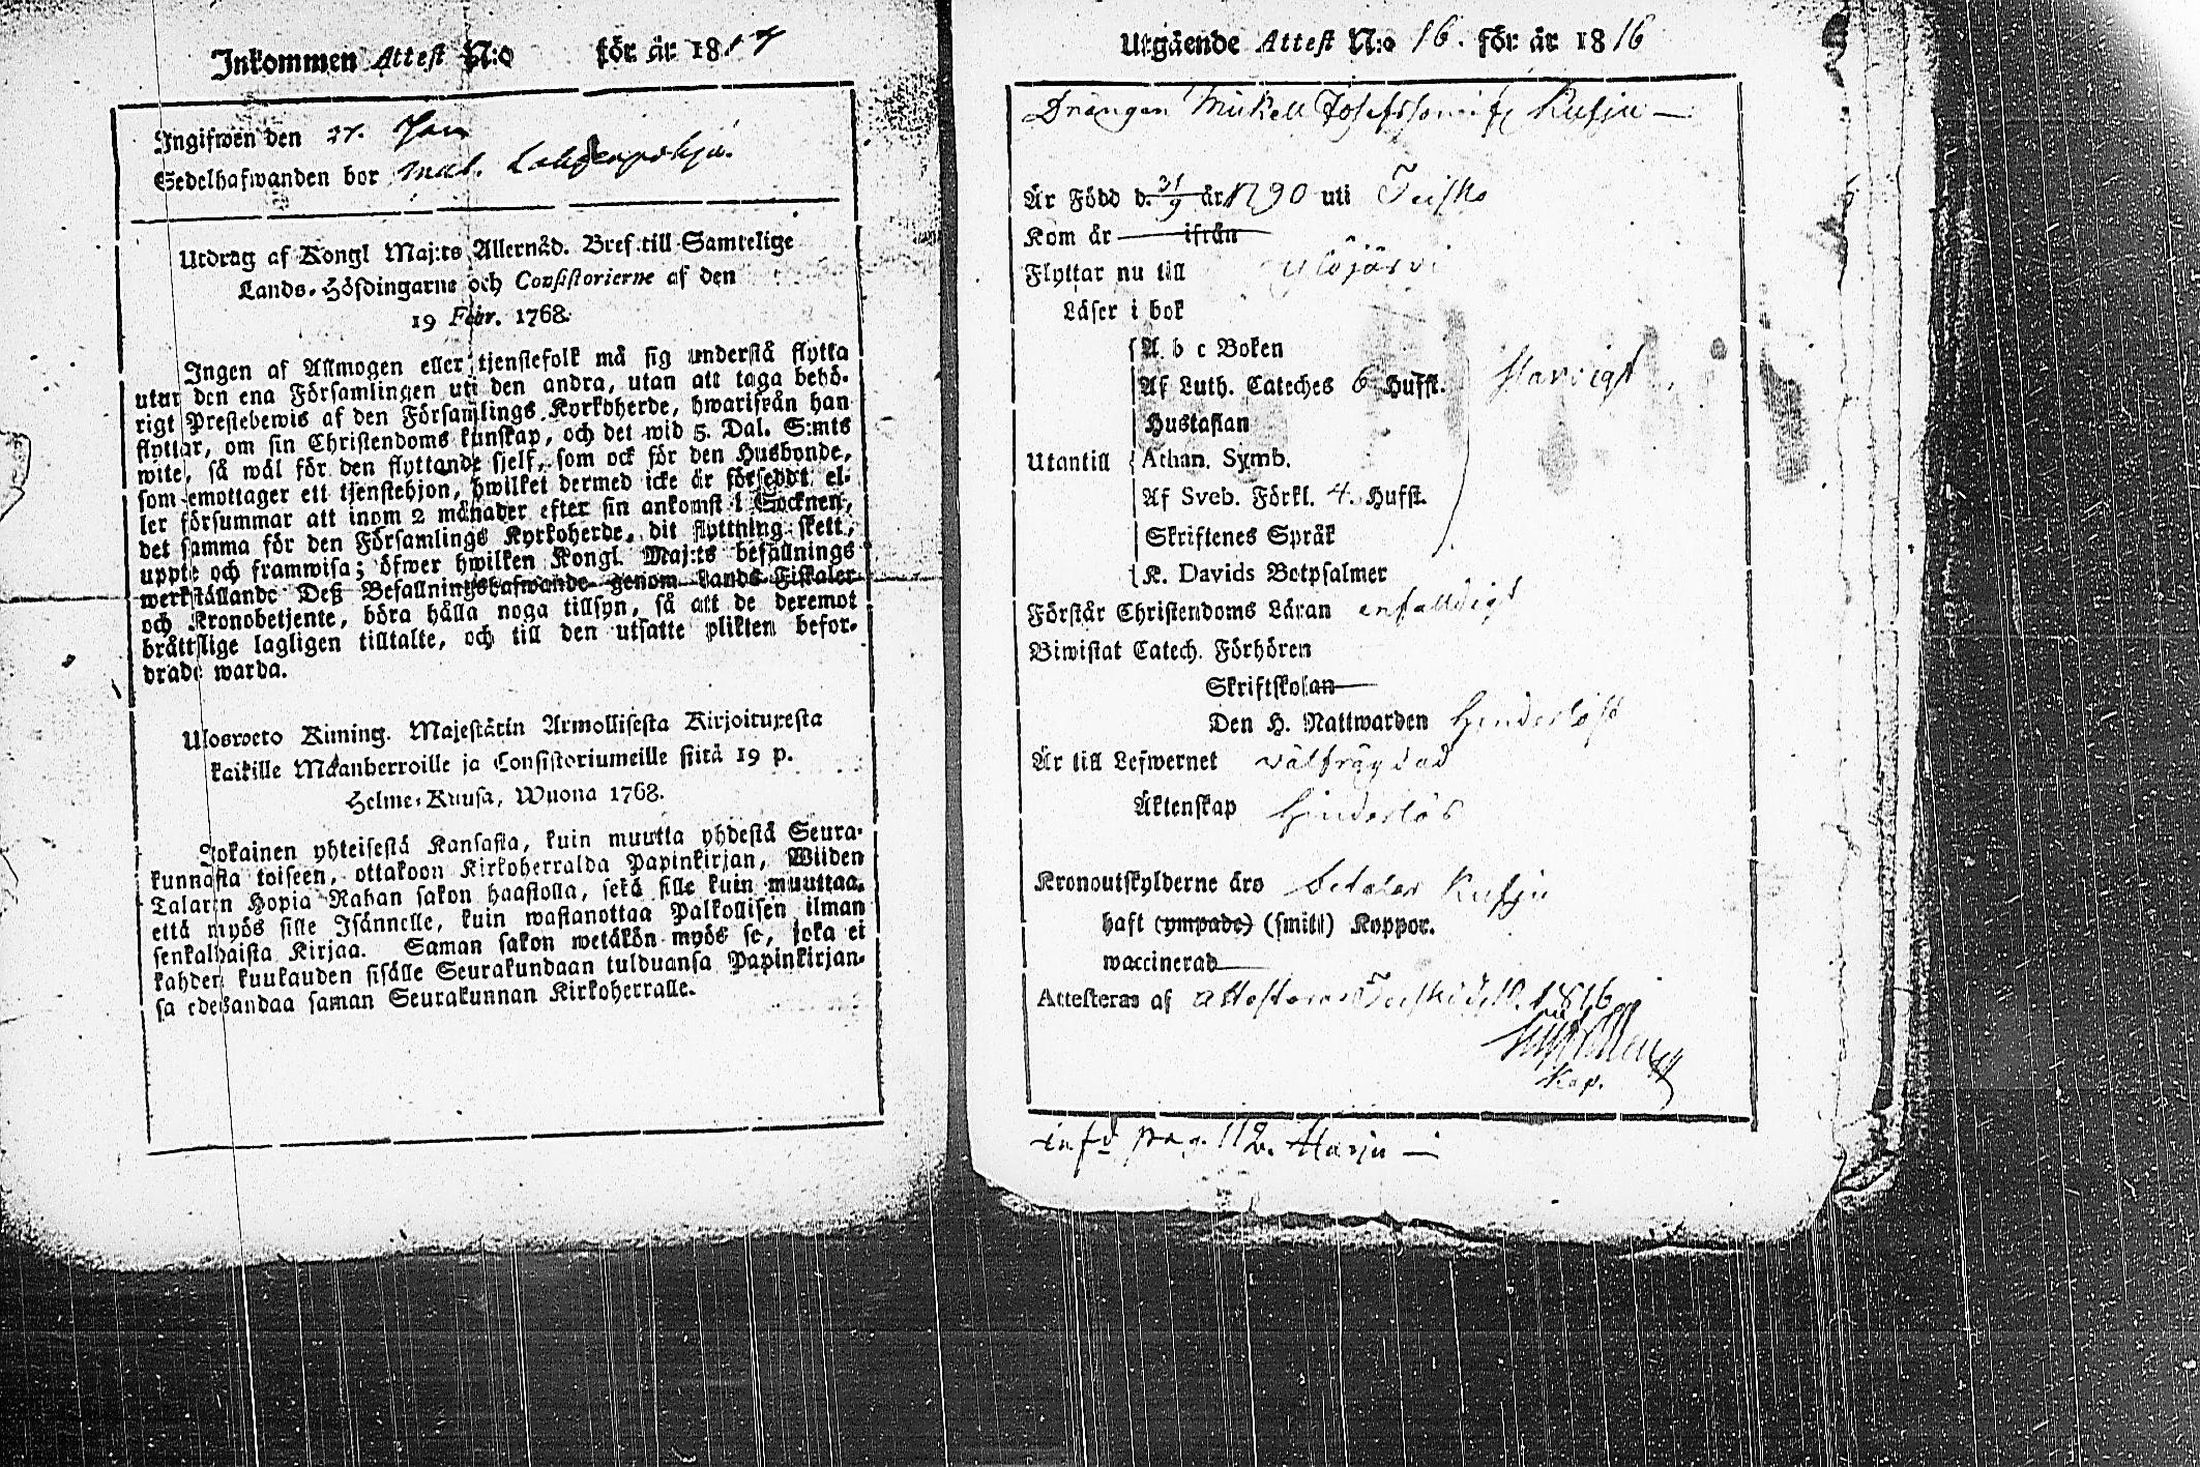 Inkommen Attest N:o för år 1817
Ingifwen den 27. Jan
Sedelhafwanden bor
Utdrag af Kongl Maj:ts Allernåd. Bref till Samtelige
Lands-Höfdingarne och Consistorierne af den
19 Febr. 1768.
Ingen af Allmogen eller tjenstefolk må sig understå flytta
utur den ena Församlingen uti den andra, utan att taga behö-
rigt Prestebewis af den Församlings Kyrkoherde, hwarifrån han
flyttar, om sin Christendoms kunskap, och det wid 5. Dal. S:mts
wite, så wäl för den flyttande sjelf, som ock för den Husbonde,
som emottager ett tjenstehjon, hwilket dermed icke är försedt el-
ler försummar att inom 2 månader efter sin ankomst i Socknen,
det samma för den Församlings Kyrkoherde, dit flyttning skett,
uppte och framwisa; öfwer hwilken Kongl Maj:ts befallnings
werkställande Deß Befallningshafwande genom Lands-Fiskaler
och Kronobetjente, böra hålla noga tillsyn, så att de deremot
bråttslige lagligen tilltalte, och till den utsatte plikten befor-
drade warda.
Ulosweto Kiming. Majestätin Armollisesta Kirjoituxesta
kaikille Maanherroille ja Consistoriumeille siitä 19 p.
Helme-Kuusa, Wuona 1768.
Jokainen yhteisestä Kansasta, kuin muutta yhdestä Seura-
kunnasta toiseen, ottakoon Kirkoherralda Papinkirjan, Wiiden
Talarin Hopia Rahan sakon haastolla, sekä sille kuin muuttaa,
että myös sille Isännelle, kuin wastanottaa Palkollisen ilman
senkalhaista Kirjaa. Saman sakon wetäkön myös se, joka ei
kahden kuukauden sisälle Seurakundaan tulduansa Papinkirjan-
sa edesandaa saman Seurakunnan Kirkoherralle.
Utgående Attest N:o 16. för år 1816
Drängen Mickell Josefsson ifr Kusju —
Är Född d. 21/9 år 1790 uti Teisko
Kom år — ifrån
Flyttar nu till Ylöjärvi
Läser i bok
A b c Boken
Af Luth. Cateches 6 Hufst.
Hustaflan
Utantill Athan. Symb.
Af Sveb. Förkl. 4. Hufst.
Skriftenes Språk
K. Davids Botpsalmer
Förstår Christendoms Läran enfalldigt
Biwistat Catech. Förhören
Skriftskolan
Den H. Nattwarden Hinderlöst
Är till Lefwernet välfrägdad
Äktenskap Hinderlös
Kronoutskylderne äro betalar Kusju
haft (ympade) (smitt) Koppor.
waccinerad
Attesteras af Attesterar Teisko 1816
Kap.
inf:d pag. 112. Harju —